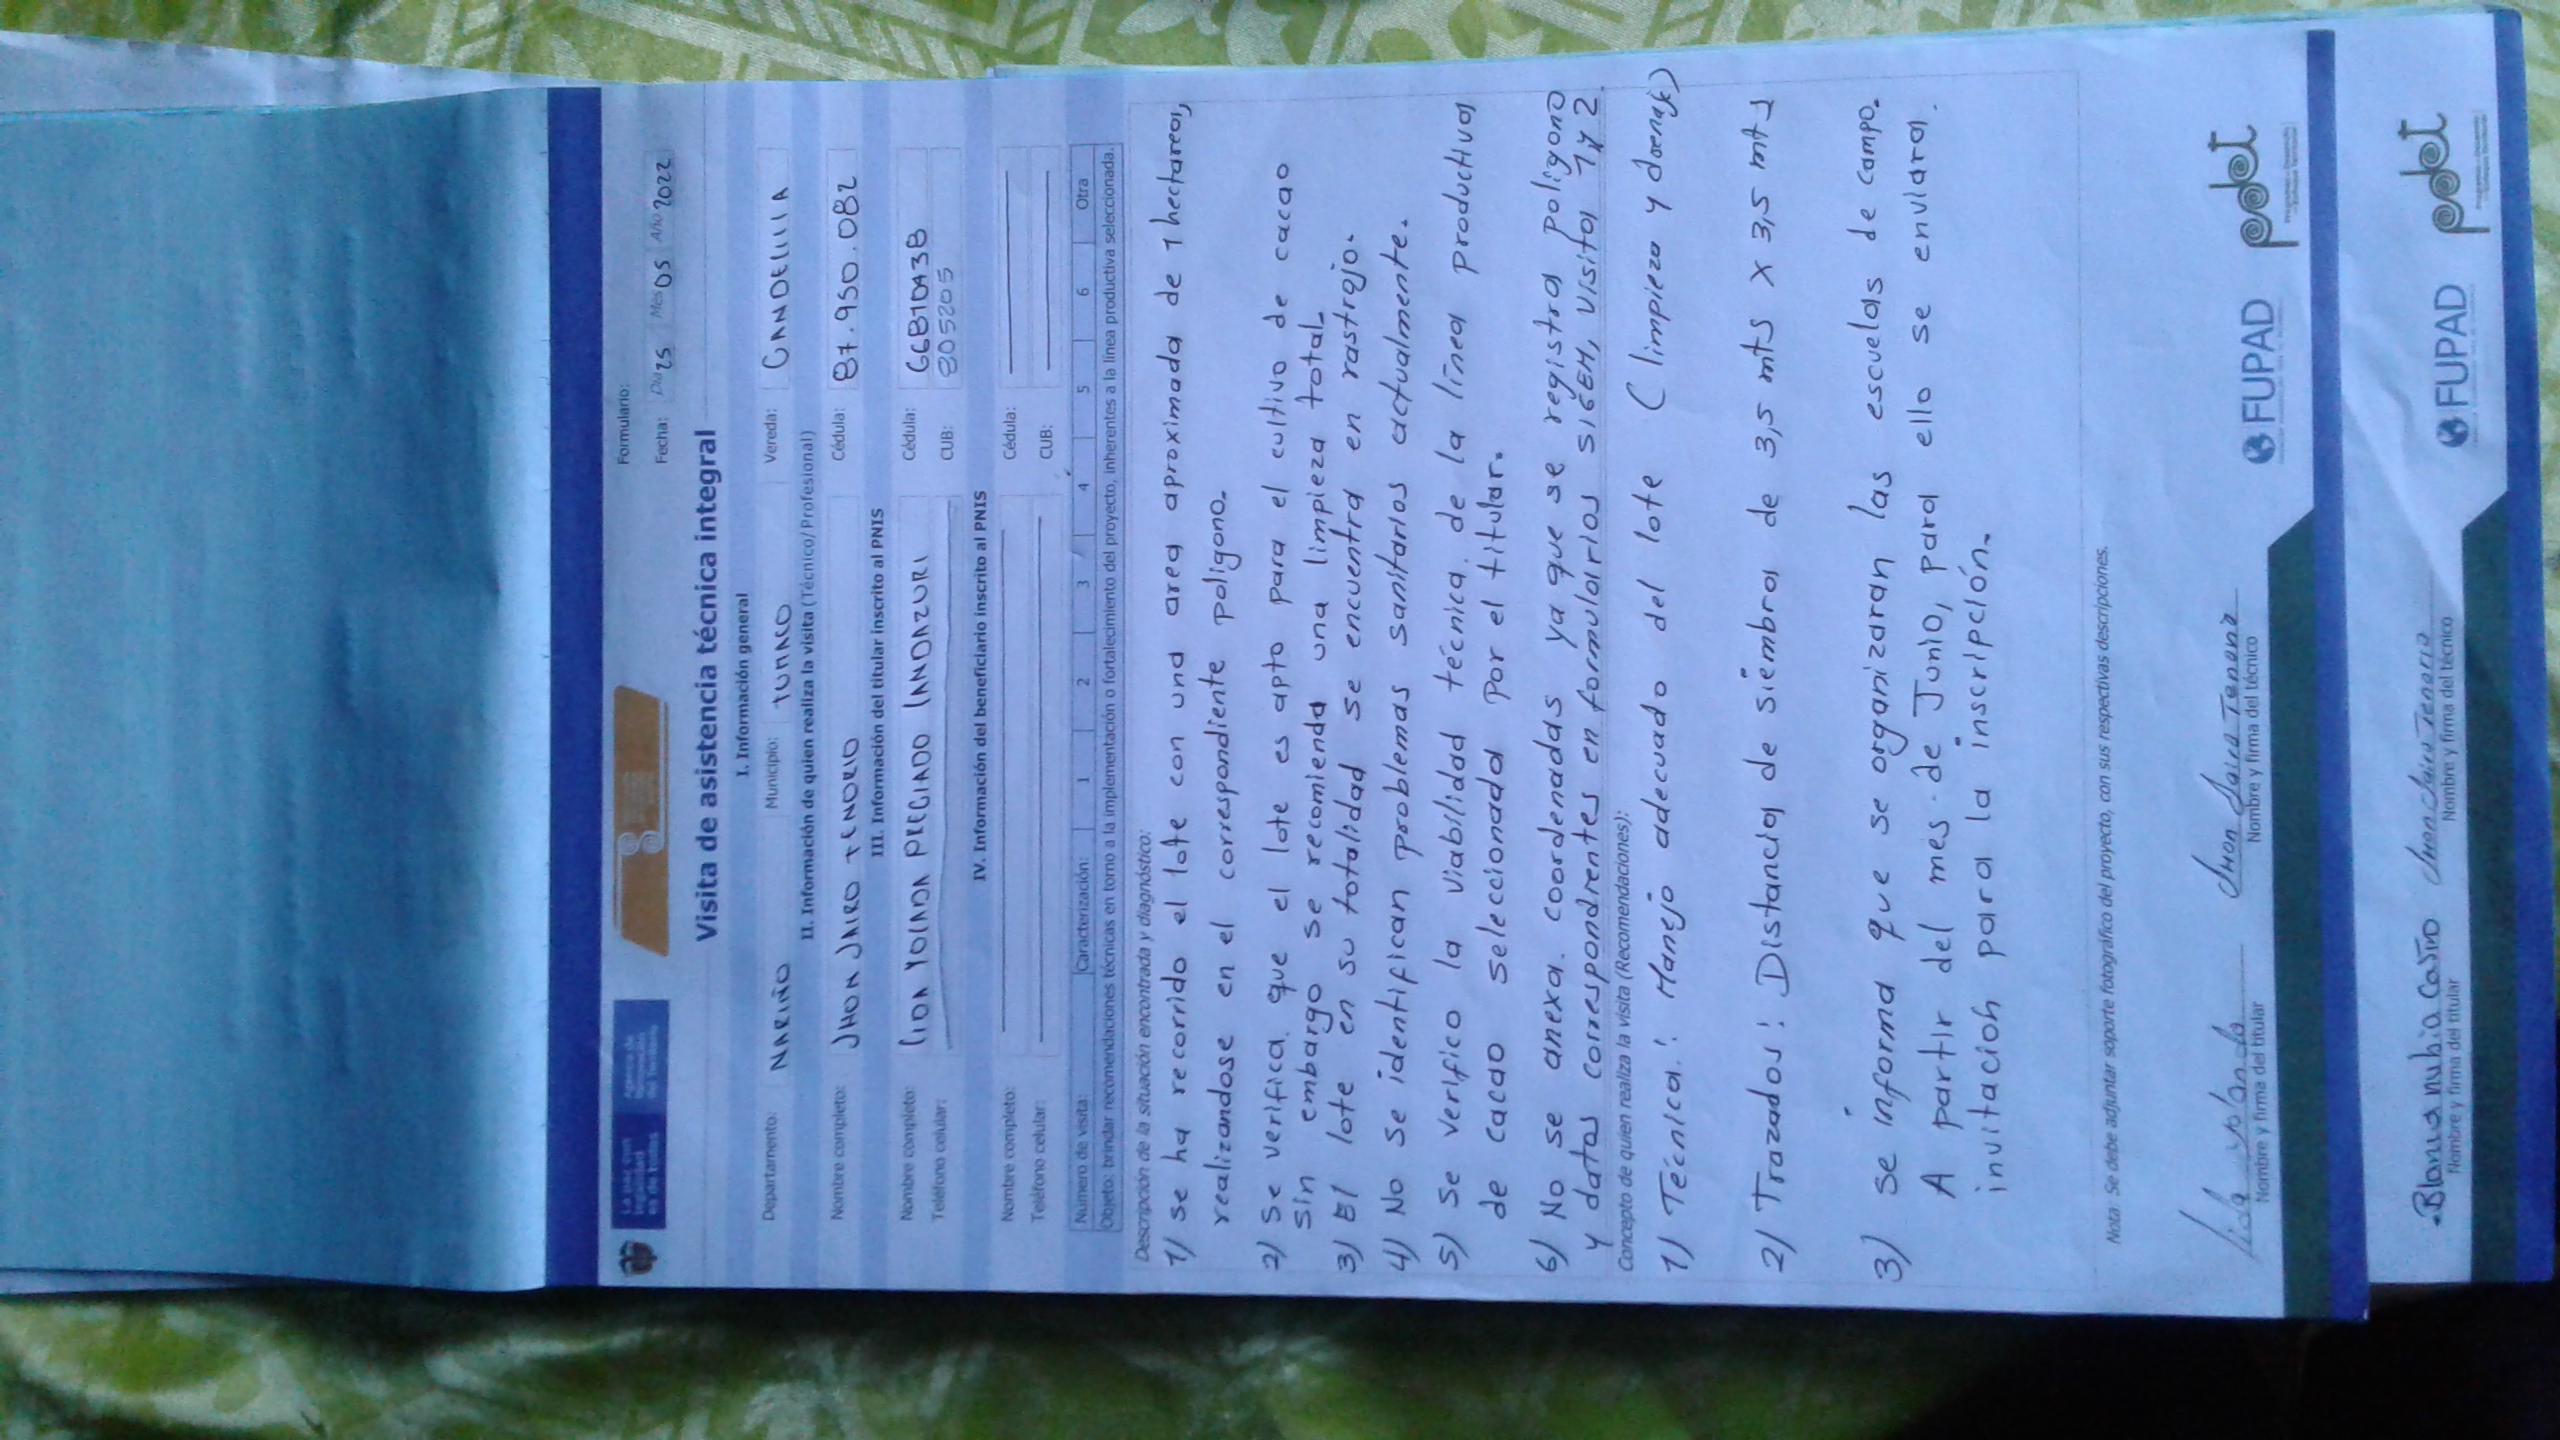 La paz con
legalidad
es de todos
Agencia de
Renovación
del Territorio
Formulario:
Fecha: Día 25 Mes 05 Año 2022
Visita de asistencia técnica integral
I. Información general
Departamento: NARIÑO Municipio: TUMACO Vereda: CANDELILLA
II. Información de quien realiza la visita (Técnico/ Profesional)
Nombre completo: JHON JAIRO TENORIO Cédula: 87.950.082
III. Información del titular inscrito al PNIS
Nombre completo: LIDA YOLANDA PRECIADO LANDAZURI Cédula:
Teléfono celular: CUB: 805205
IV. Información del beneficiario inscrito al PNIS
Nombre completo: Cédula:
Teléfono celular: CUB:
Número de visita: Caracterización: 1 2 3 4 5 6 Otra
Objeto: brindar recomendaciones técnicas en torno a la implementación o fortalecimiento del proyecto, inherentes a la línea productiva seleccionada.
Descripción de la situación encontrada y diagnóstico:
1) se ha recorrido el lote con una area aproximada de 1 hectarea,
realizandose en el correspondiente poligono.
2) Se verifica que el lote es apto para el cultivo de cacao
sin embargo se recomienda una limpieza total.
3) El lote en su totalidad se encuentra en rastrojo.
4) No se identifican problemas sanitarios actualmente.
5) Se verifico la viabilidad técnica de la línea productiva
de cacao seleccionada por el titular.
6) No se anexa coordenadas ya que se registra poligono
y datos correspondientes en formularios SIGEH, visita 1 y 2
Concepto de quien realiza la visita (Recomendaciones):
1) Técnica: Manejo adecuado del lote (limpieza y drenaje)
2) Trazados: Distancia de siembra de 3,5 mts x 3,5 mts
3) Se informa que se organizaran las escuelas de campo.
A partir del mes de Junio, para ello se enviara
invitación para la inscripción.
Nota: Se debe adjuntar soporte fotográfico del proyecto, con sus respectivas descripciones.
Lida yolanda Jhon Jairo Tenorio
Nombre y firma del titular Nombre y firma del técnico
FUPAD pdet
Blanca nubia Castro Jhon Jairo Tenorio
Nombre y firma del titular Nombre y firma del técnico
FUPAD pdet